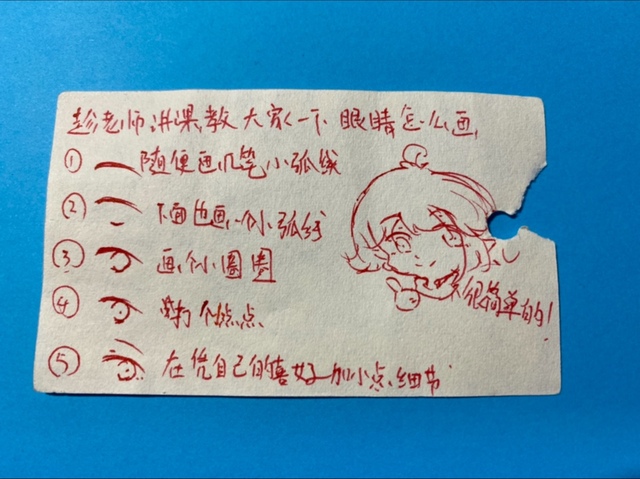 彭老师讲课,教大家一下眼睛怎么画
① 随便画几笔小弧线
② 下面也画一个小弧线
③ 画个小圆圈
④ 打个点点
⑤ 在凭自己的喜好加小点细节
很简单的!